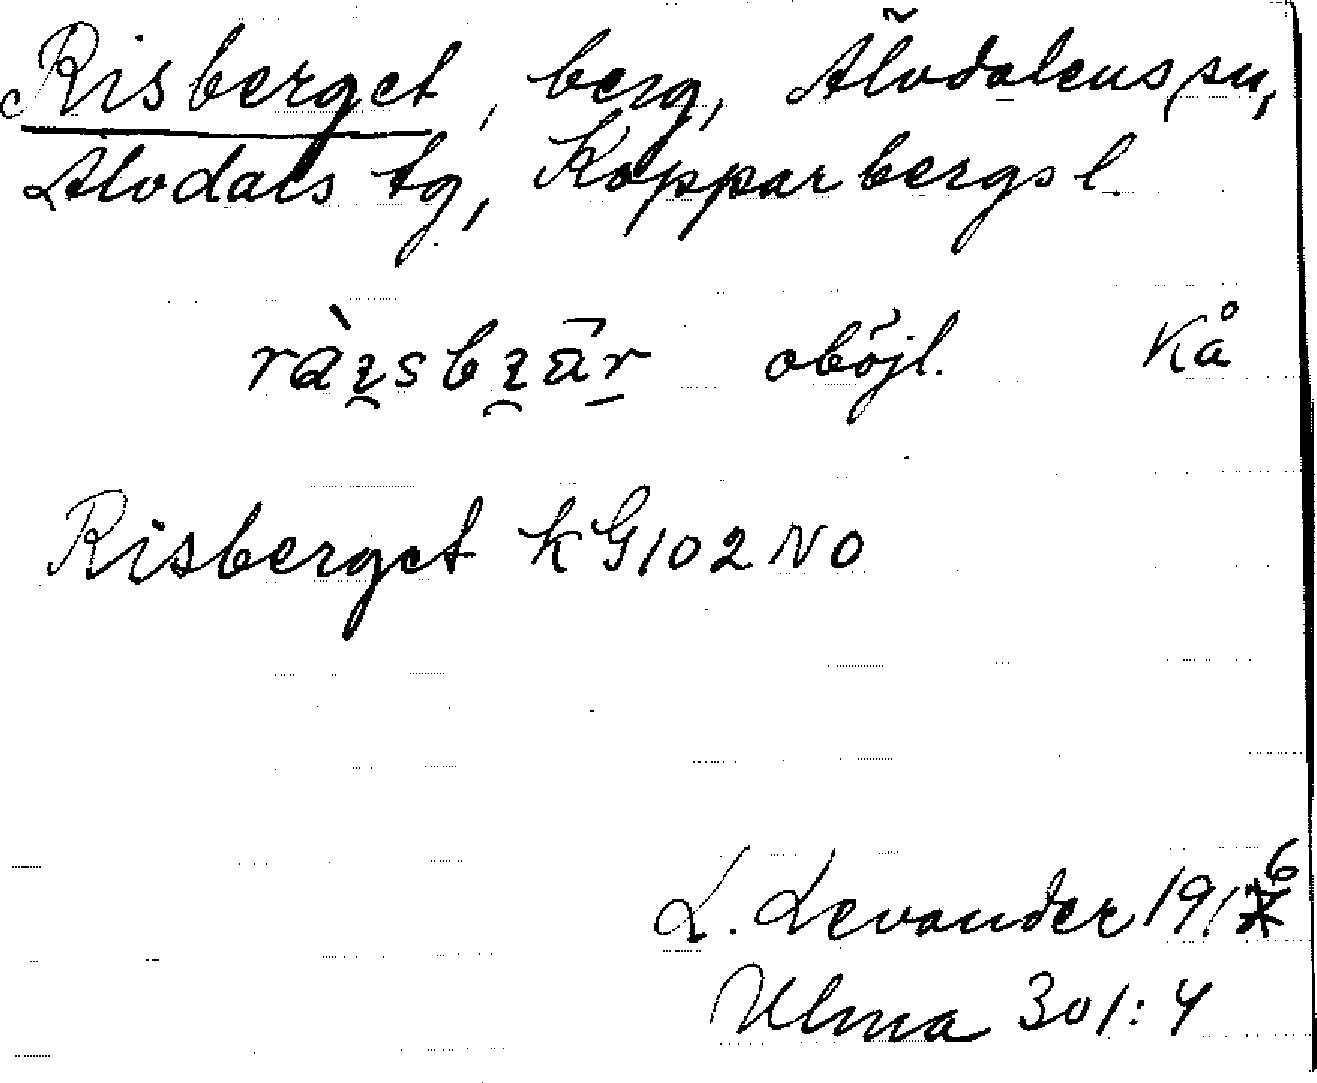 Risberget, berg, Älvdalens sn,
Älvdals tg, Kopparbergs l.
oböjl. Kå
Risberget kG102NO
L. Levander 1916
Ulma 301:4